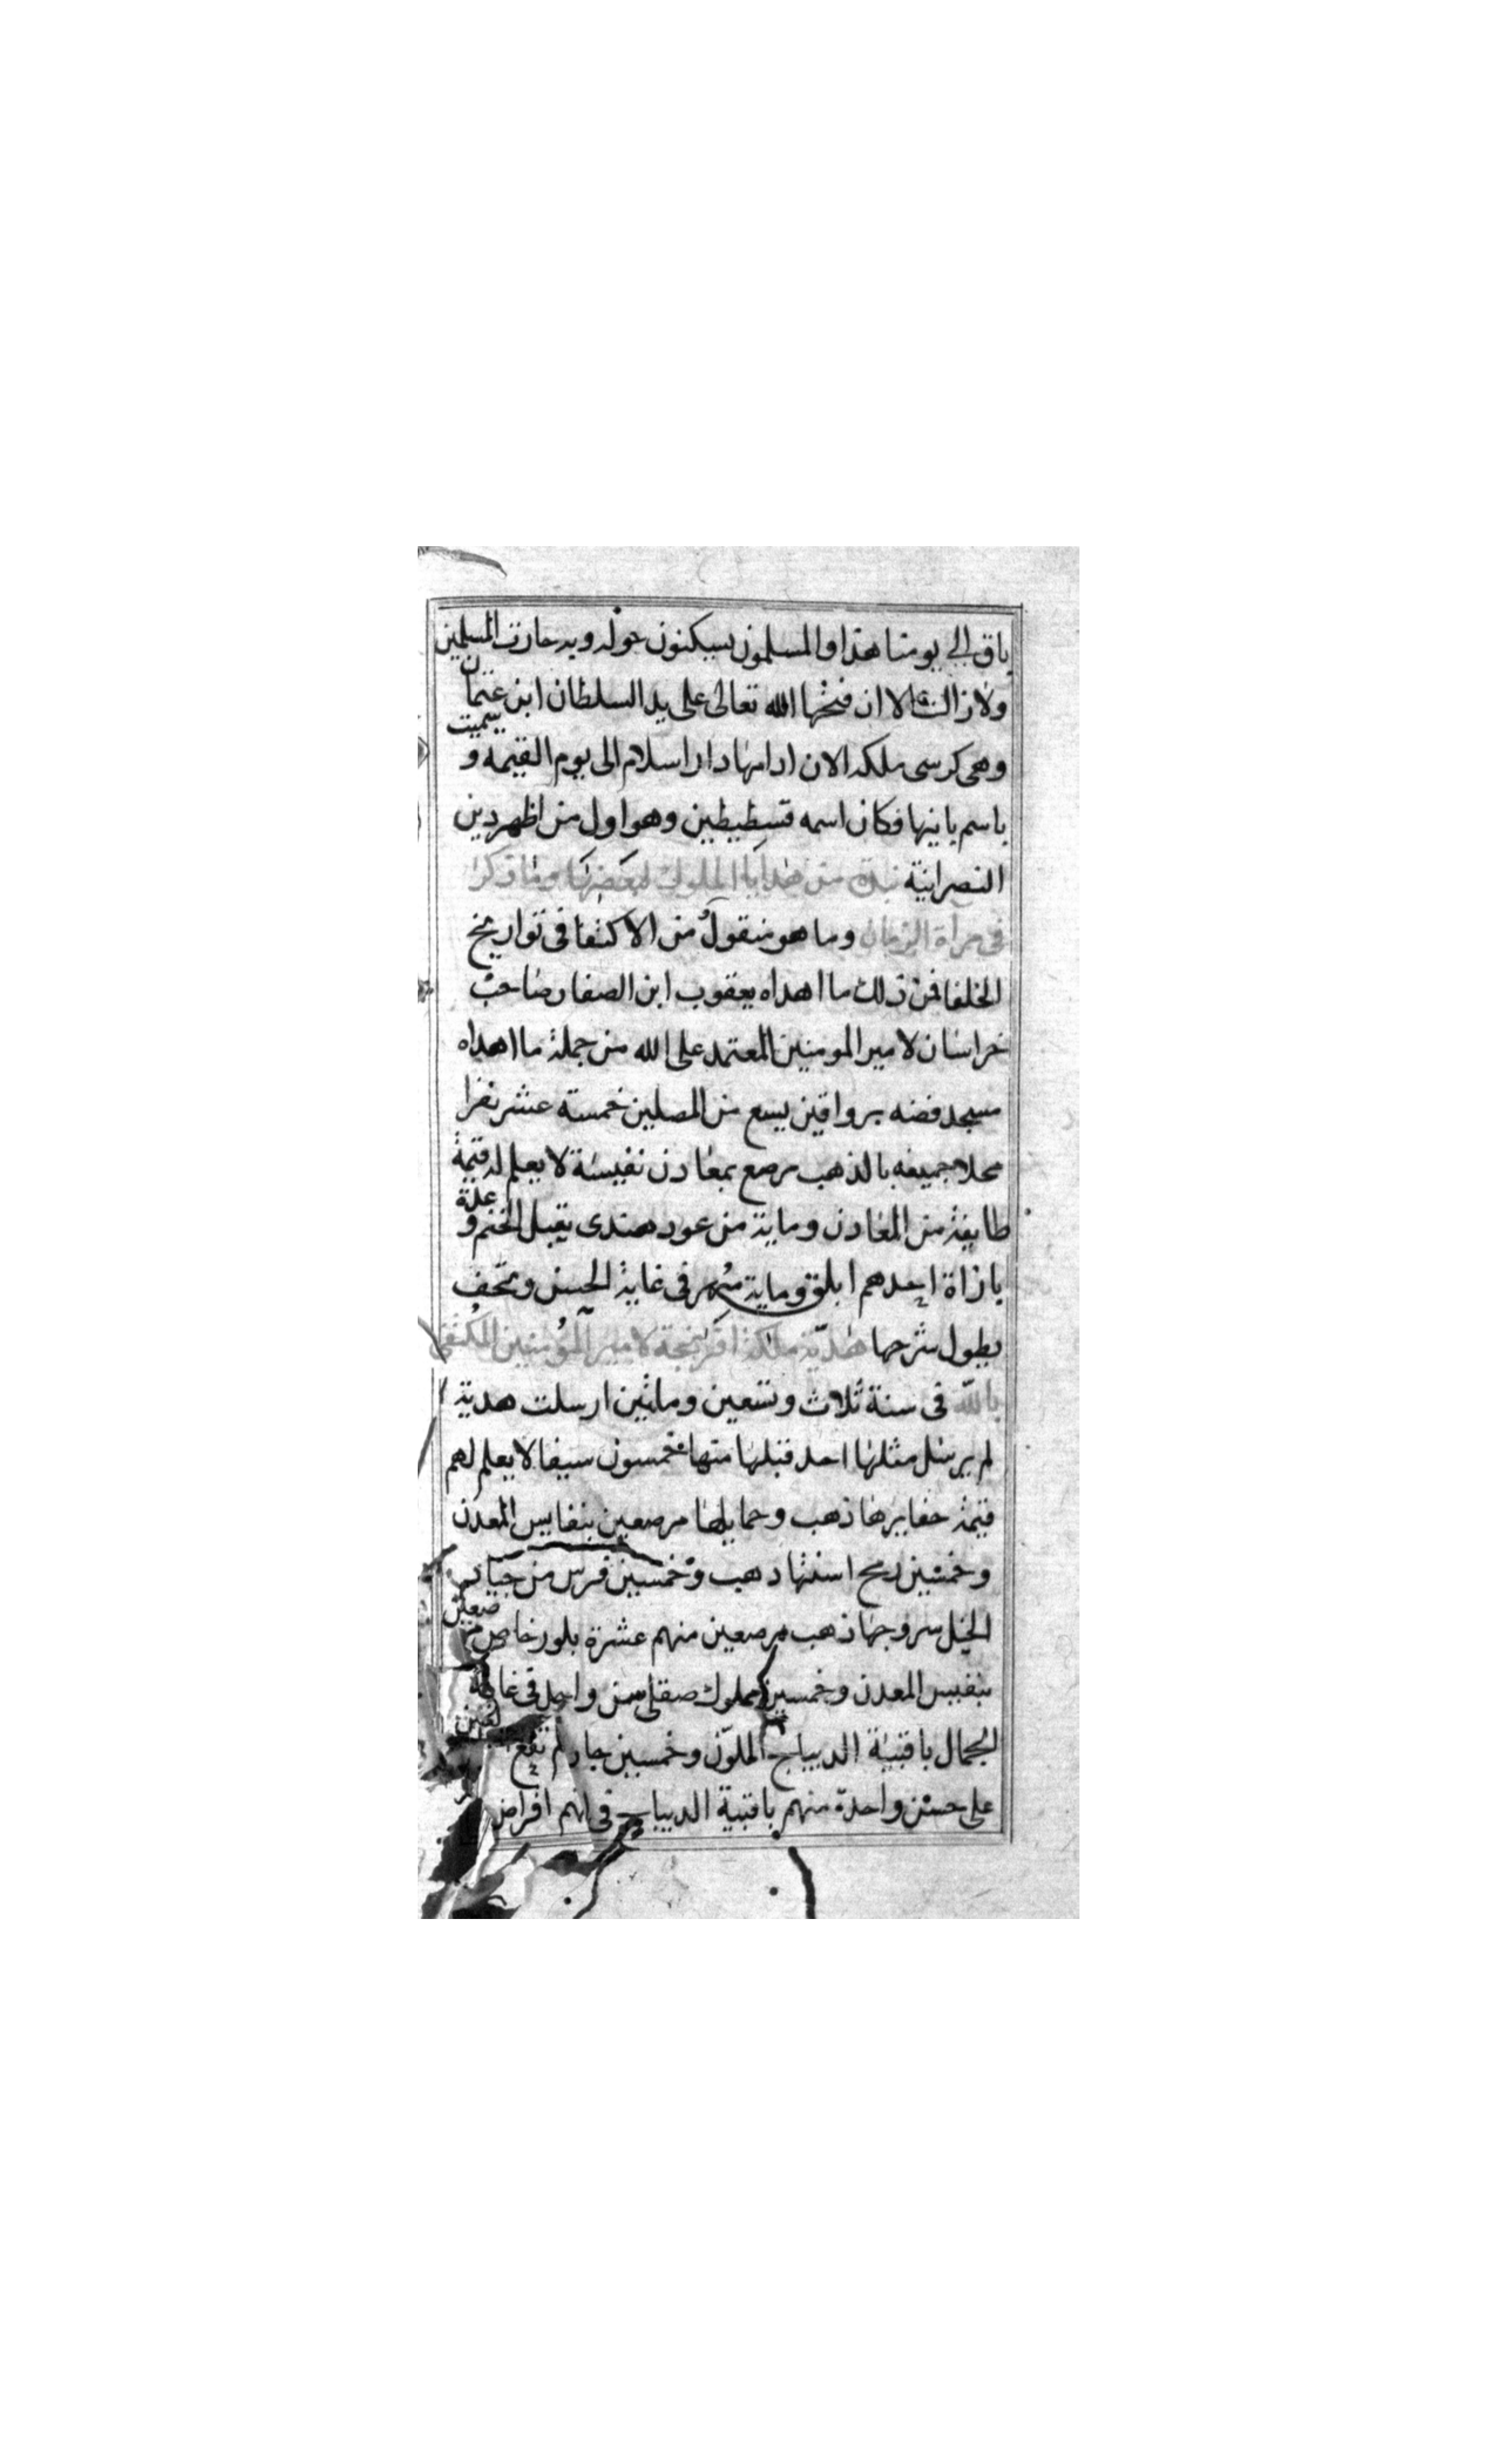 باق الى يومنا هذا والمسلمون يسكنون حوله وبه حارت المسلمين
ولا زالت الا ان فتحها الله تعالى على يد السلطان ابن عثمان
وهى كرسى ملكه الان ادامها دار اسلام الى يوم القيمه و سميت
باسم بانيها فكان اسمه قسطيطين وهو اول من اظهر دين
النصرانية نبذة من هدايا الملوك لبعضها وما ذكر
فى مرآة الزمان وما هو منقول من الاكتفا فى تواريخ
الخلفا فمن ذلك ما اهداه يعقوب ابن الصفار صاحب
خراسان لامير المومنين المعتمد على الله من جملة ما اهداه
مسجد فضه برواقين يسع من المصلين خمسته عشر نفرا
محلا جميعه بالذهب مرصع بمعادن نفيسة لا يعلم له قيمة
طايفة من المعادن وماية من عود هندى يقبل الختم و عدة
بازاة احدهم ابلق وماية مهر فى غاية الحسن وتحف
يطول شرحها هدية ملكة افرنجة لامير المؤمنين المكتفى
بالله فى سنة ثلاث وتسعين وماتين ارسلت هدية
لم يرسل مثلها احد قبلها منها خمسون سيفا لا يعلم لهم
قيمة حفايرها ذهب وحمايلها مرصعين بنفايس المعدن
وخمسين رمح اسنتها دهب وخمسين فرس من جياد
الخيل سروجها ذهب مرصعين منهم عشرة بلور خاص مرصعين
بنفيس المعدن وخمسين مملوك صقلى سن واحد فى غاية
الجمال باقبية الديباج الملون وخمسين جار لم تقع العين
على حسن واحدة منهم باقبية الديباج فى انهم اقراص